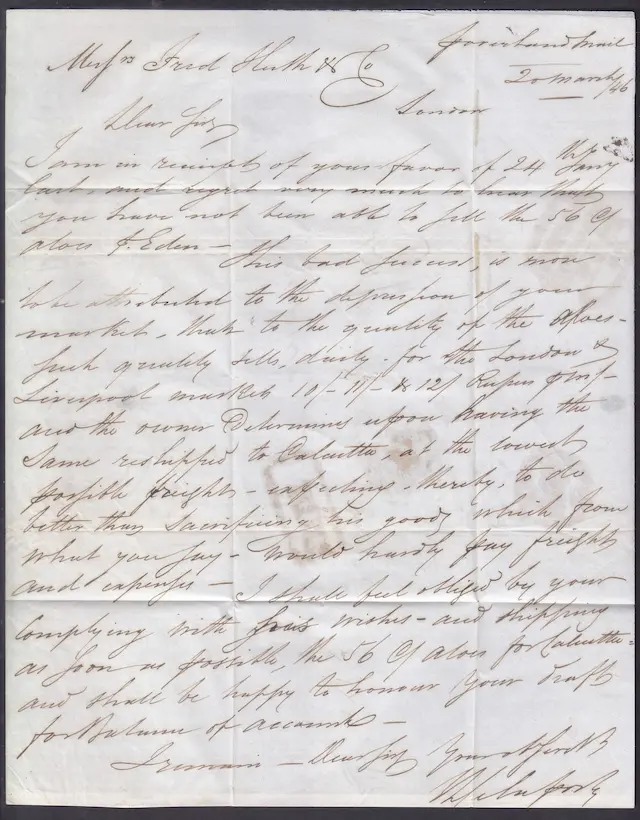 pr overland mail
20 March /46
Messrs Fred Huth & Co
London
Dear Sirs
I am in receipt of your favor of 24th Jany
last and regret very much to hear that
you have not been able to sell the 56 Cs
aloes p Eden –
This bad success, is more
to be attributed to the depression of your
market, than to the quality of the Aloes –
Such quality sells, daily – for the London &
Liverpool markets 10/– 11/– & 12/ Rupees
and the owner Determines upon having the
same reshipped to Calcutta, at the lowest
possible freight – expecting thereby, to do
better than sacrificing his goods which from
what you say – would hardly pay freight
and expenses – I shall feel obliged by your
complying with his wishes – and shipping
as soon as possible, the 56 Cs aloes for Calcutta –
and shall be happy to honour your draft
for Balance of account –
I remain – Dear Sirs Your